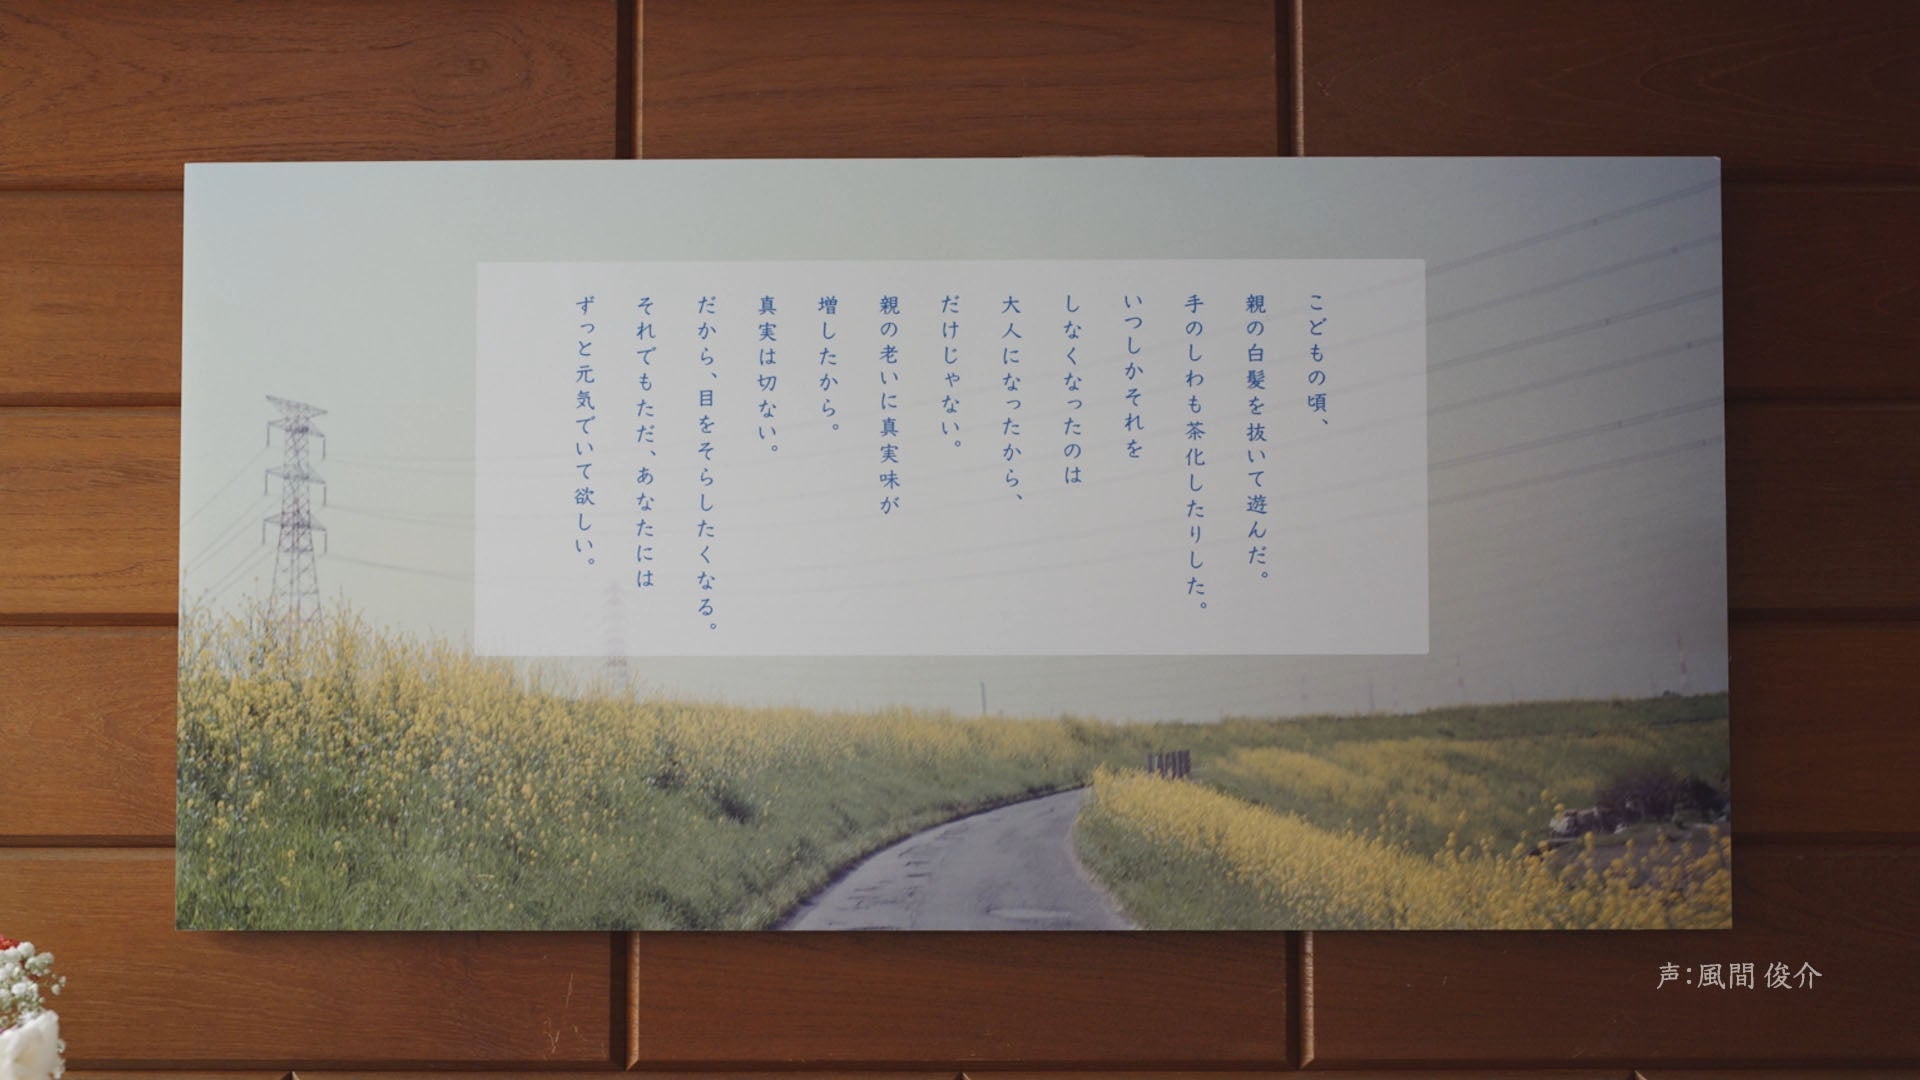 こどもの頃、
親の白髪を抜いて遊んだ。
手のしわも茶化したりした。
いつしかそれを
しなくなったのは
大人になったから、
だけじゃない。
親の老いに真実味が
増したから。
真実は切ない。
だから、目をそらしたくなる。
それでもただ、あなたには
ずっと元気でいて欲しい。
声:風間 俊介